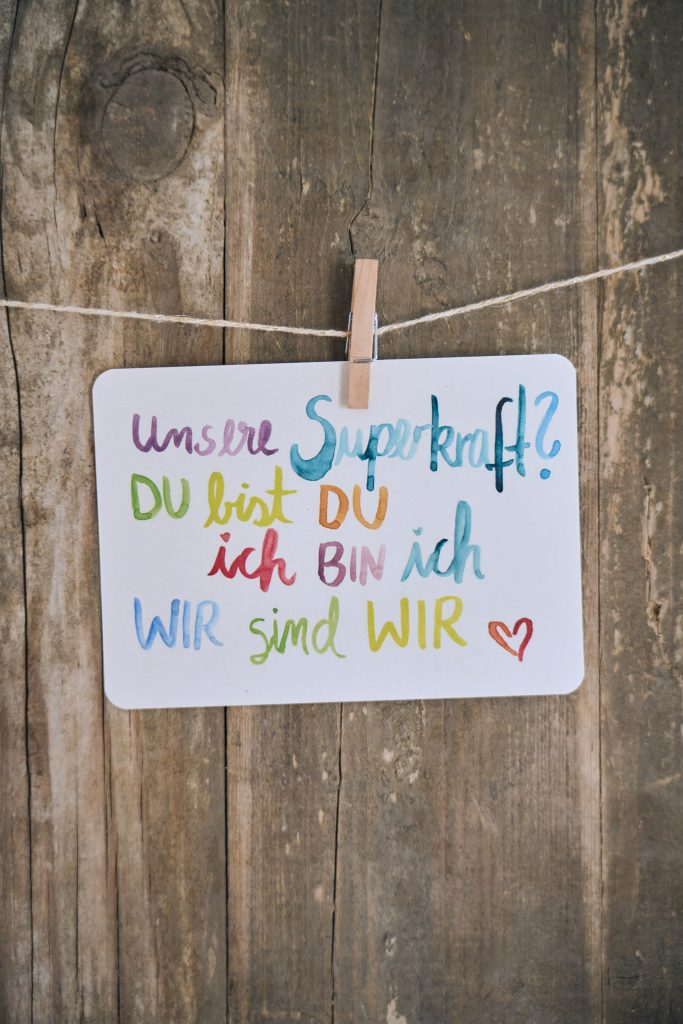 unsere Superkraft?
DU bist DU
ich BIN ich
WIR sind WIR